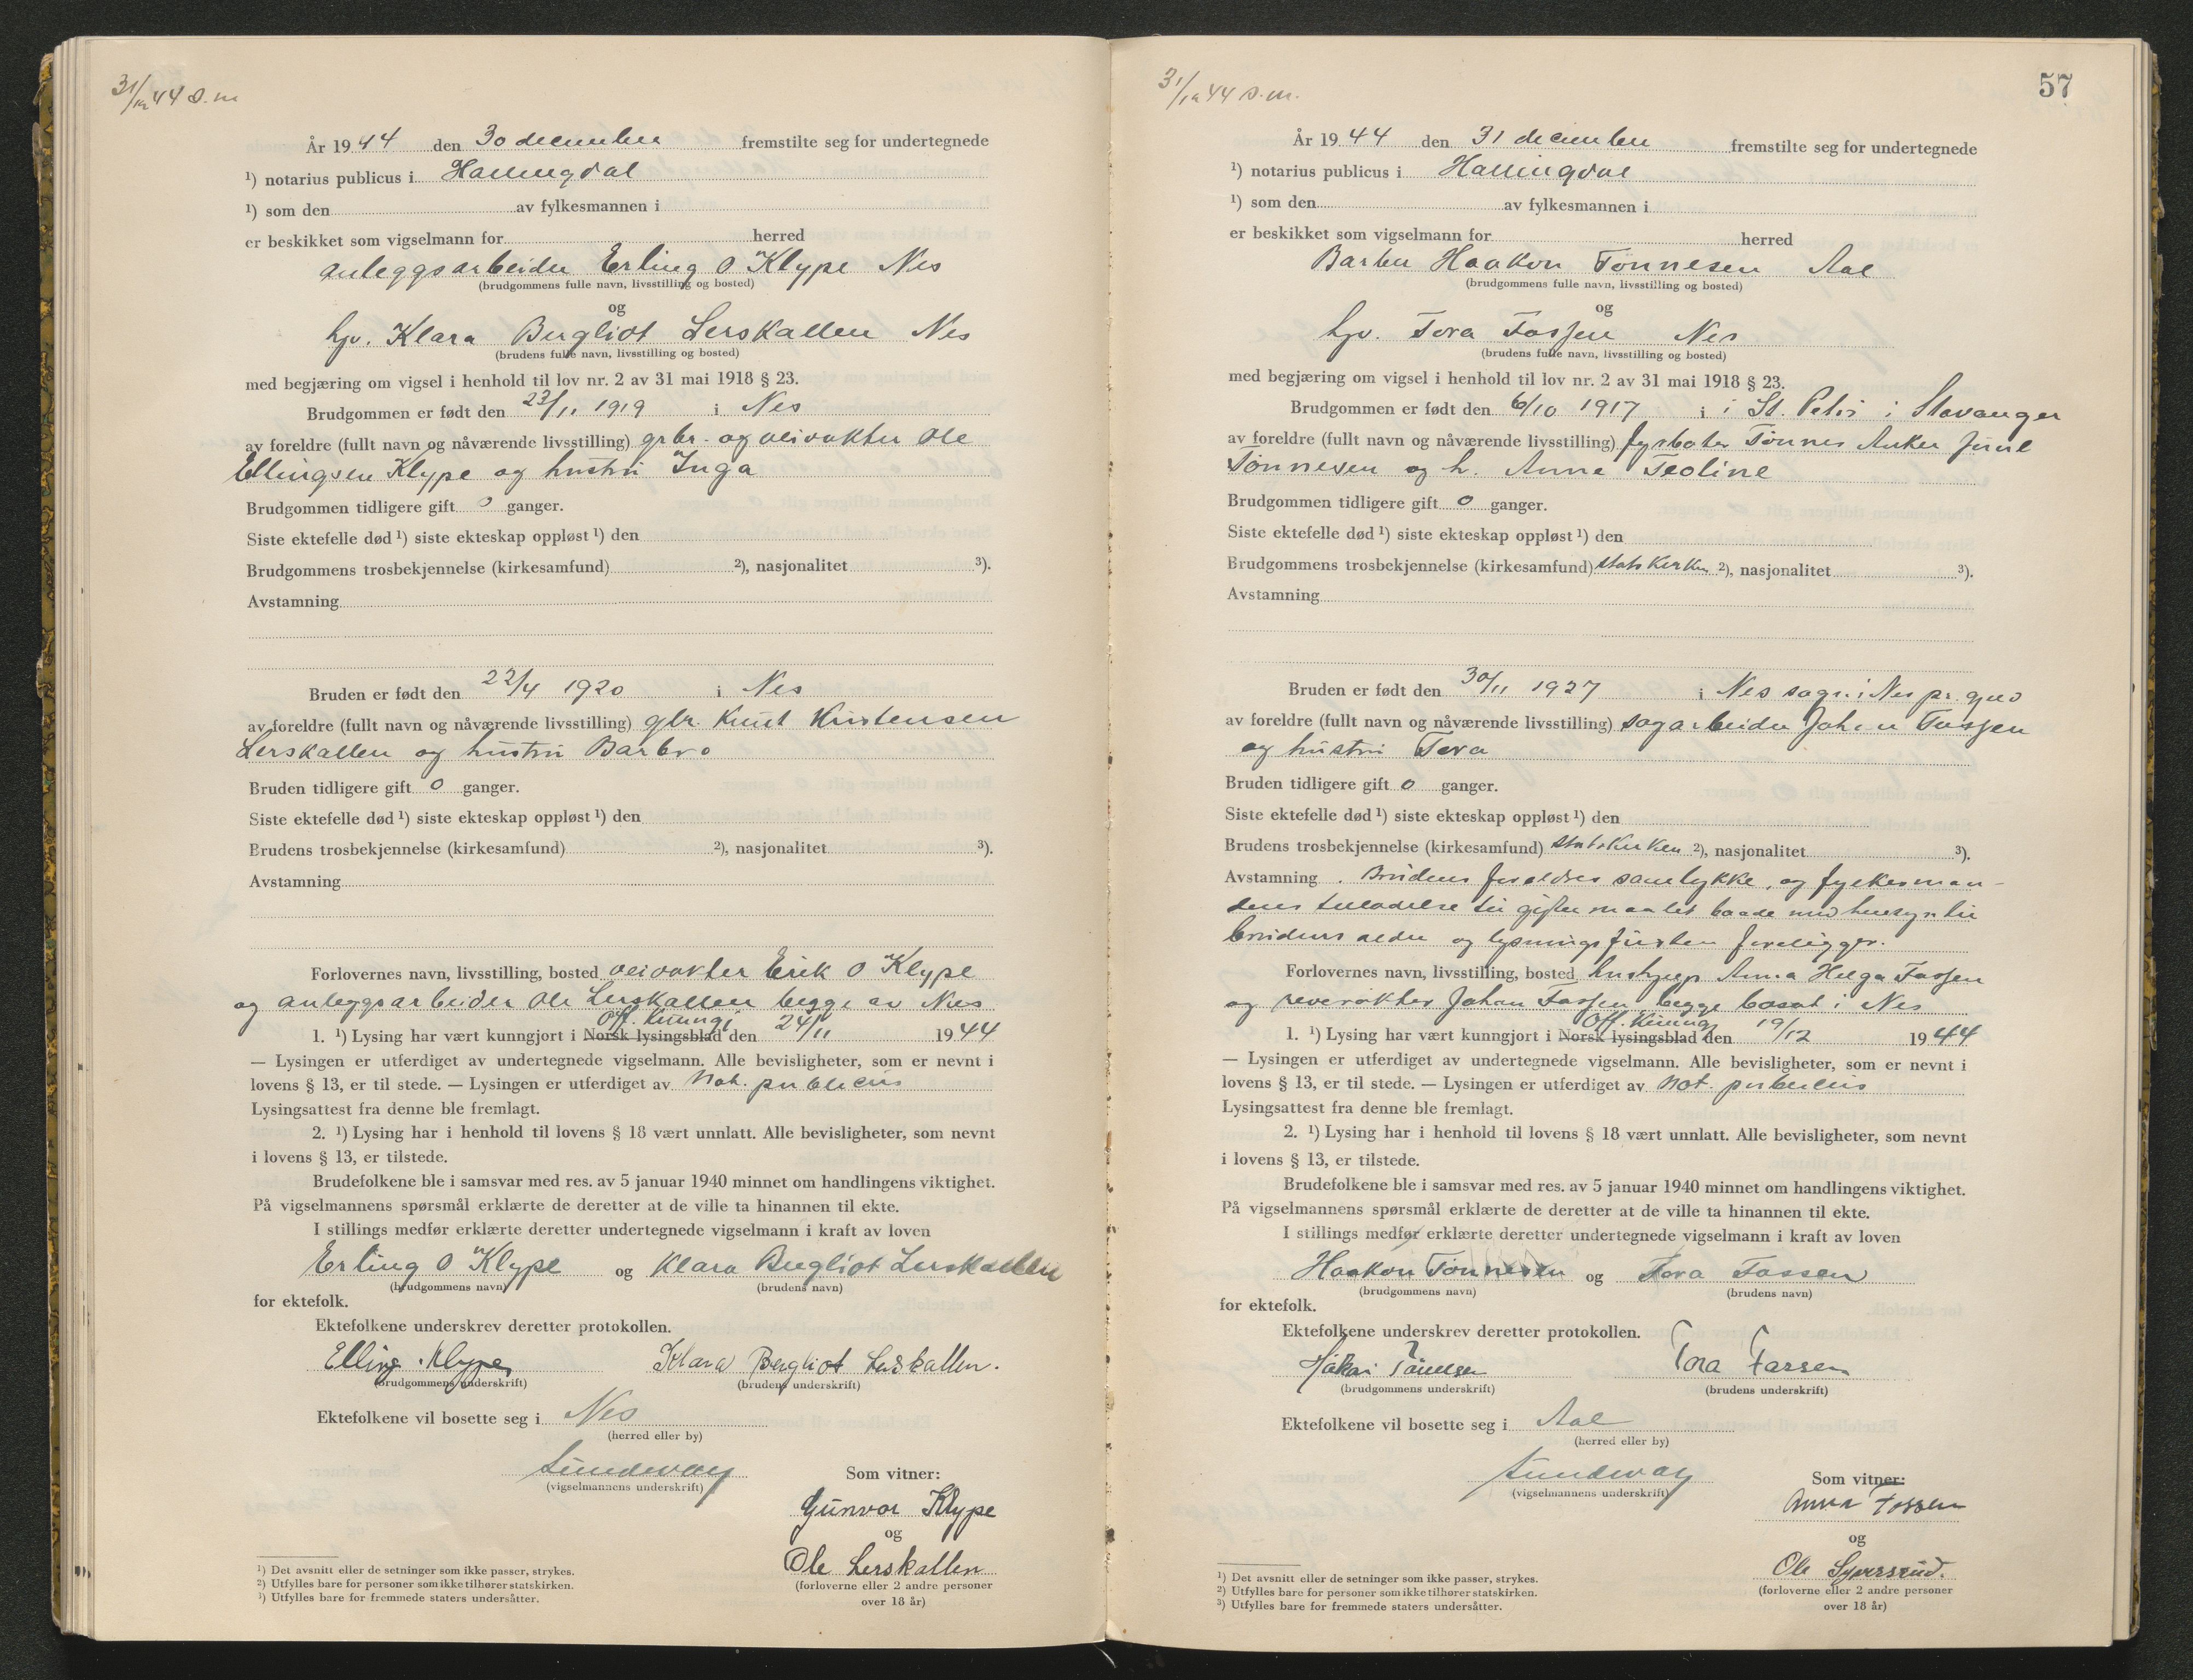 31/12 44 S.m
År 1944 den 30 december fremstilte seg for undertegnede
¹) notarius publicus i Hallingdal
¹) som den av fylkesmannen i
er beskikket som vigselmann for herred
anleggsarbeider Erling O Klype Nes
(brudgommens fulle navn, livsstilling og bosted)
og
hp. Klara Bergliot Lerskallen Nes
(brudens fulle navn, livsstilling og bosted)
med begjæring om vigsel i henhold til lov nr. 2 av 31 mai 1918 § 23.
Brudgommen er født den 23/11 1919 i Nes
av foreldre (fullt navn og nåværende livsstilling) grbr. og veivokter Ole
Ellingsen Klype og hustru Inga
Brudgommen tidligere gift 0 ganger.
Siste ektefelle død ¹) siste ekteskap oppløst ¹) den
Brudgommens trosbekjennelse (kirkesamfund) ²), nasjonalitet ³).
Avstamning
Bruden er født den 22/4 1920 i Nes
av foreldre (fullt navn og nåværende livsstilling) gbr. Knut Kristensen
Lerskallen og hustru Barbro
Bruden tidligere gift 0 ganger.
Siste ektefelle død ¹) siste ekteskap oppløst ¹) den
Brudens trosbekjennelse (kirkesamfund) ²), nasjonalitet ³).
Avstamning
Forlovernes navn, livsstilling, bosted veivokter Erik O Klype
og anleggsarbeider Ole Lerskallen begge av Nes
Off. Kunngj
1. ¹) Lysing har vært kunngjort i Norsk lysingsblad den 24/11 1944
— Lysingen er utferdiget av undertegnede vigselmann. Alle bevisligheter, som er nevnt i
lovens § 13, er til stede. — Lysingen er utferdiget av Not. publicus
Lysingsattest fra denne ble fremlagt.
2. ¹) Lysing har i henhold til lovens § 18 vært unnlatt. Alle bevisligheter, som nevnt
i lovens § 13, er tilstede.
Brudefolkene ble i samsvar med res. av 5 januar 1940 minnet om handlingens viktighet.
På vigselmannens spørsmål erklærte de deretter at de ville ta hinannen til ekte.
I stillings medfør erklærte deretter undertegnede vigselmann i kraft av loven
Erling O Klype og Klara Bergliot Lerskallen
(brudgommens navn) (brudens navn)
for ektefolk.
Ektefolkene underskrev deretter protokollen.
Elling Klype Klara Bergliot Lerskallen.
(brudgommens underskrift) (brudens underskrift)
Ektefolkene vil bosette seg i Nes
(herred eller by)
Lundevay Som vitner:
(vigselmannens underskrift)
Gunvor Klype
og
Ole Lerskallen
(forloverne eller 2 andre personer
over 18 år)
¹) Det avsnitt eller de setninger som ikke passer, strykes.
²) Utfylles bare for personer som ikke tilhører statskirken.
³) Utfylles bare for fremmede staters undersåtter.
31/12 44 S.m.
57
År 1944 den 31 december fremstilte seg for undertegnede
¹) notarius publicus i Hallingdal
¹) som den av fylkesmannen i
er beskikket som vigselmann for herred
Barber Haakon Tønnesen Aal
(brudgommens fulle navn, livsstilling og bosted)
og
hp. Tora Fossen Nes
(brudens fulle navn, livsstilling og bosted)
med begjæring om vigsel i henhold til lov nr. 2 av 31 mai 1918 § 23.
Brudgommen er født den 6/10 1917 i i St. Petri i Stavanger
av foreldre (fullt navn og nåværende livsstilling) fyrbøter Tønnes Anker Juul
Tønnesen og h. Anna Teoline
Brudgommen tidligere gift 0 ganger.
Siste ektefelle død ¹) siste ekteskap oppløst ¹) den
Brudgommens trosbekjennelse (kirkesamfund) statskirken ²), nasjonalitet ³).
Avstamning
Bruden er født den 30/11 1927 i Nes sogn i Nes pr.gjed
av foreldre (fullt navn og nåværende livsstilling) sagarbeider Johan Fossen
og hustru Tora
Bruden tidligere gift 0 ganger.
Siste ektefelle død ¹) siste ekteskap oppløst ¹) den
Brudens trosbekjennelse (kirkesamfund) statskirken ²), nasjonalitet ³).
Avstamning . Brudens foreldres samtykke, og fylkesman-
dens tilladelse til giftermaalet baade med hensyn til
brudens alder og lysningsfristen foreligger.
Forlovernes navn, livsstilling, bosted hushjelp Anna Helga Fossen
og reverøkter Johan Fossen begge bosat i Nes
Off. Kunng
1. ¹) Lysing har vært kunngjort i Norsk lysingsblad den 19/12 1944
— Lysingen er utferdiget av undertegnede vigselmann. Alle bevisligheter, som er nevnt i
lovens § 13, er til stede. — Lysingen er utferdiget av Not. publicus
Lysingsattest fra denne ble fremlagt.
2. ¹) Lysing har i henhold til lovens § 18 vært unnlatt. Alle bevisligheter, som nevnt
i lovens § 13, er tilstede.
Brudefolkene ble i samsvar med res. av 5 januar 1940 minnet om handlingens viktighet.
På vigselmannens spørsmål erklærte de deretter at de ville ta hinannen til ekte.
I stillings medfør erklærte deretter undertegnede vigselmann i kraft av loven
Haakon Tønnesen og Tora Fossen
(brudgommens navn) (brudens navn)
for ektefolk.
Ektefolkene underskrev deretter protokollen.
Håkon Tønnesen Tora Fossen
(brudgommens underskrift) (brudens underskrift)
Ektefolkene vil bosette seg i Aal
(herred eller by)
Lundevay Som vitner:
(vigselmannens underskrift)
Anna Fossen
og
Ole Syversrud.
(forloverne eller 2 andre personer
over 18 år)
¹) Det avsnitt eller de setninger som ikke passer, strykes.
²) Utfylles bare for personer som ikke tilhører statskirken.
³) Utfylles bare for fremmede staters undersåtter.